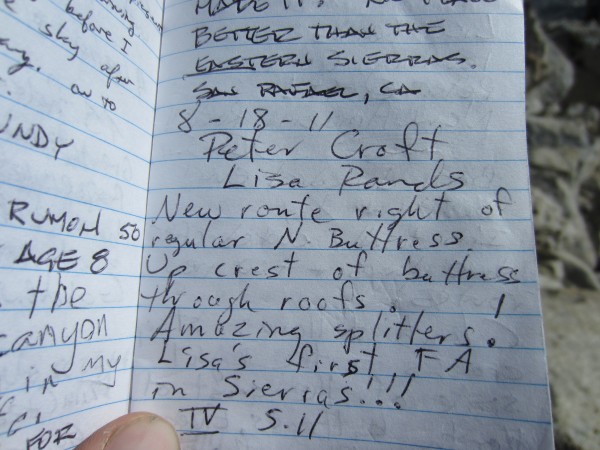 before I
sky after
on to
RUMOH 50
AGE 8
the
canyon
in my
FOR
MADE IT!
BETTER THAN THE
EASTERN SIERRAS.
SAN RAFAEL, CA
8-18-11
Peter Croft
Lisa Rands
New route right of
regular N. Buttress.
Up crest of buttress
through roofs.
Amazing splitters!
Lisa's first FA
in Sierras!!!
IV 5.11